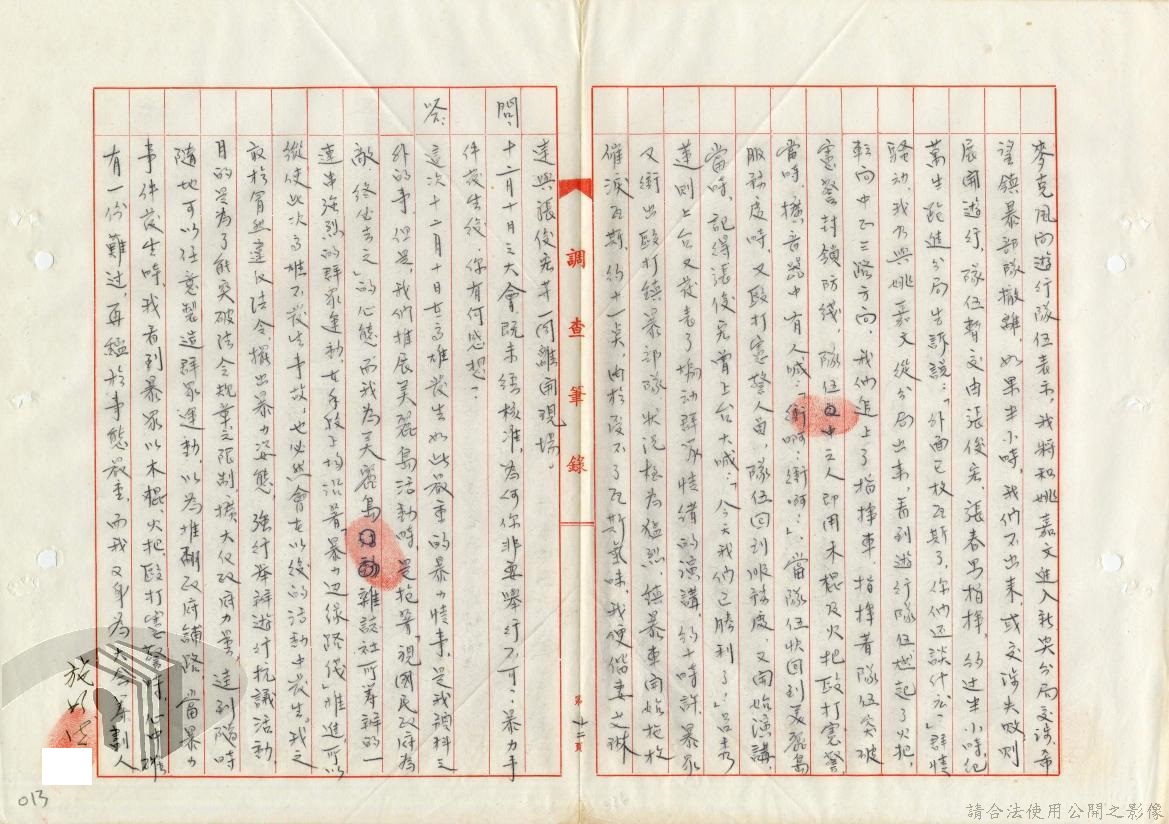 麥克風向遊行隊伍表示，我將和姚嘉文進入新興分局交涉，希
望鎮暴部隊撤離，如果半小時，我們不出來，或交涉失敗，則
展開遊行，隊伍暫交由張俊宏、張春男指揮，約過半小時，紀
萬生跑進分局告訴說：「外面已放瓦斯了，你們還談什么」群情
騷動，我乃與姚嘉文從分局出來，看到遊行隊伍燃起了火把，
轉向中正三路方向，我們追上了指揮車，指揮著隊伍突破
憲警封鎖防線，隊伍中之人即用木棍及火把毆打憲警，
當時，擴音器中有人喊：「衝啊，衝啊」，當隊伍快回到美麗島
服務處時，又毆打憲警人員，隊伍回到服務處，又開始演講，
當時，記得張俊宏曾上台大喊：「今天我們已勝利了」呂秀
蓮則上台又發表了煽動群眾情緒的演講，約十時許，暴眾
又衝出毆打鎮暴部隊，狀況極為猛烈，鎮暴車開始施放
催淚瓦斯，約十一點，由於受不了瓦斯氣味，我便偕妻艾琳
達與張俊宏等一同離開現場。
調查筆錄
第十二頁
問：十二月十日之大會，既未經核准，為何你非要舉行不可？暴力事
件發生後，你有何感想？
答：這次十二月十日在高雄發生如此嚴重的暴力情事，是我預料之
外的事，但是，我們推展美麗島活動時，是抱著「視國民政府為
敵，終必去之」的心態，而我為美麗島雜誌社所籌辦的一
連串強烈的群眾運動，在手段上均沿著「暴力邊緣路線」推進，所以
縱使此次高雄不發生事故，也必然會在以後的活動中發生。我之
敢於冒然違反法令，擺出暴力姿態，強行舉辦遊行抗議活動，
目的是為了能突破法令規章之限制，擴大反政府力量，達到隨時
隨地可以任意製造群眾運動，以為推翻政府鋪路。當暴力
事件發生時，我看到暴眾以木棍、火把毆打憲警時，心中確
有一份難過，再鑑於事態嚴重，而我又身為大會籌劃人
施明德
013
請合法使用公開之影像